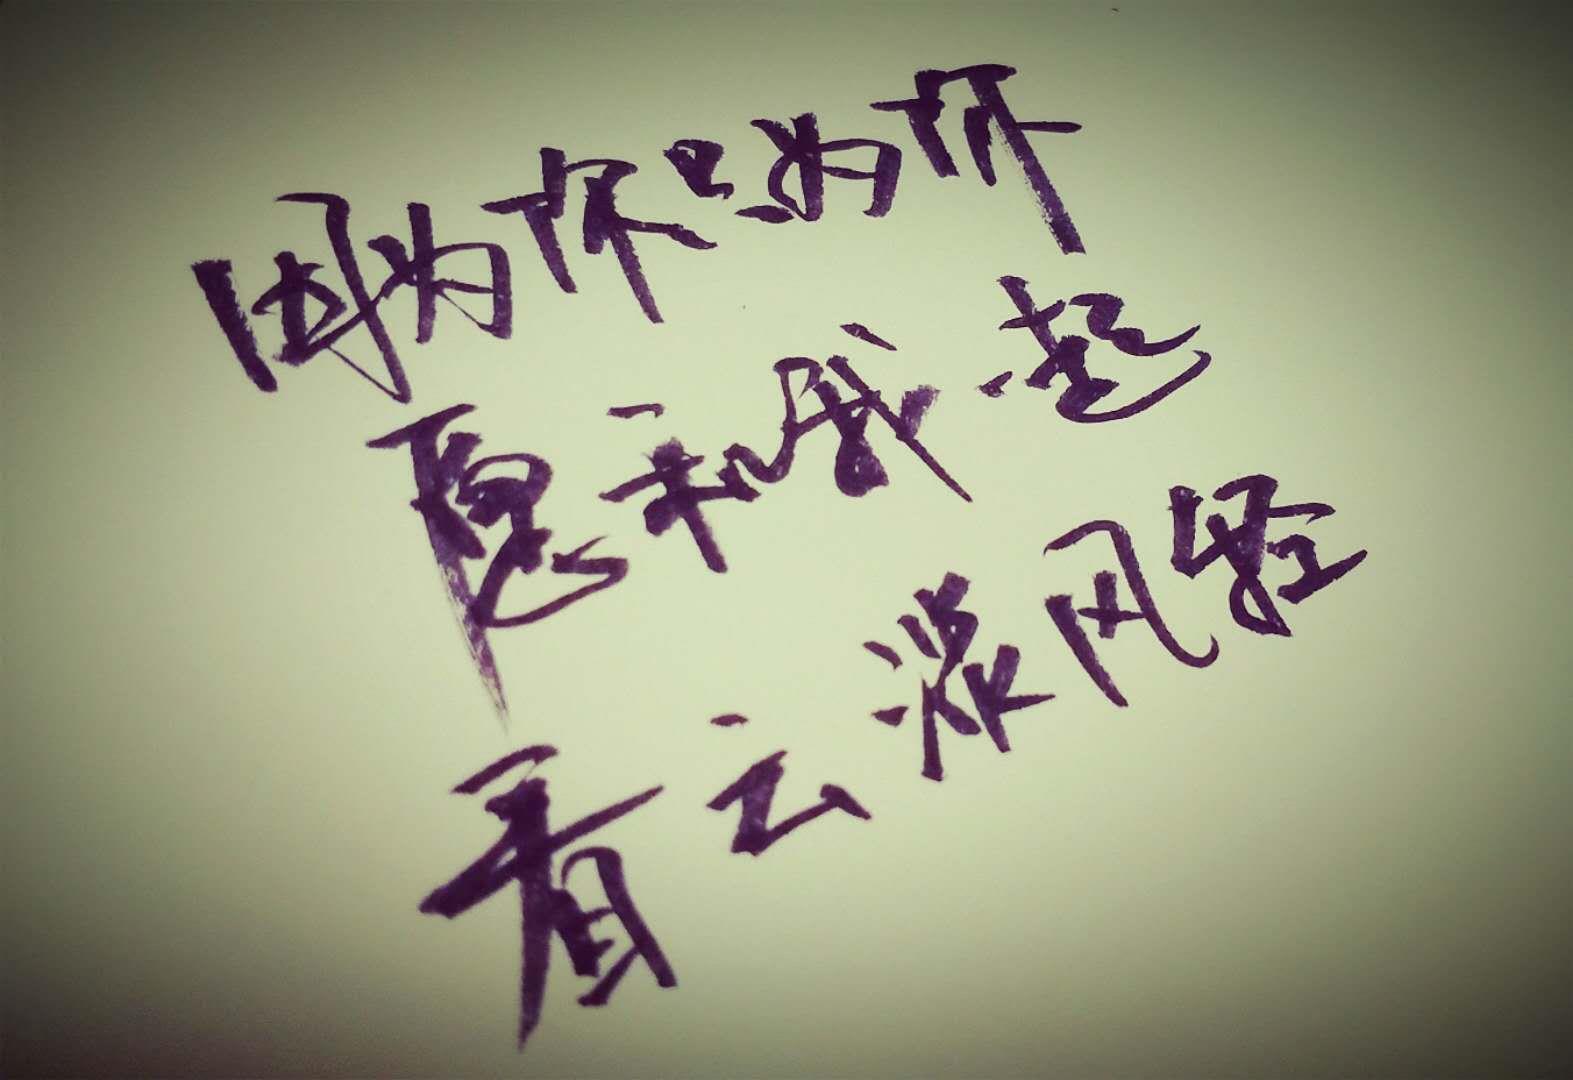 因为你只为你
愿和我一起
看云淡风轻